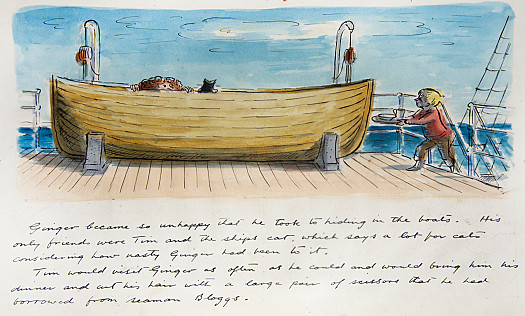 Ginger became so unhappy that he took to hiding in the boats. His
only friend were Tim and the ships cat, which says a lot for cats
considering how nasty Ginger had been to it.
Tim would visit Ginger as often as he could and would bring him his
dinner and cut his hair with a large pair of scissors that he had
borrowed from seaman Bloggs.